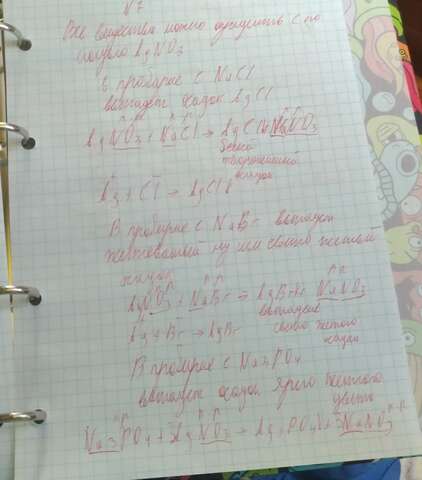 №2
Все вещества можно определить с по
мощью AgNO3
В пробирке с NaCl
выпадет осадок AgCl
AgNO3 + NaCl → AgCl↓ + NaNO3
белый
творожистый
осадок
Ag + Cl → AgCl↓
В пробирке с NaBr выпадет
желтоватый или светло желтый
осадок
AgNO3 + NaBr → AgBr↓ + NaNO3
выпадение
светло желтого
осадка
Ag + Br → AgBr
В пробирке с Na3PO4
выпадет осадок ярко желтого
цвета
Na3PO4 + 3AgNO3 → Ag3PO4↓ + 3NaNO3